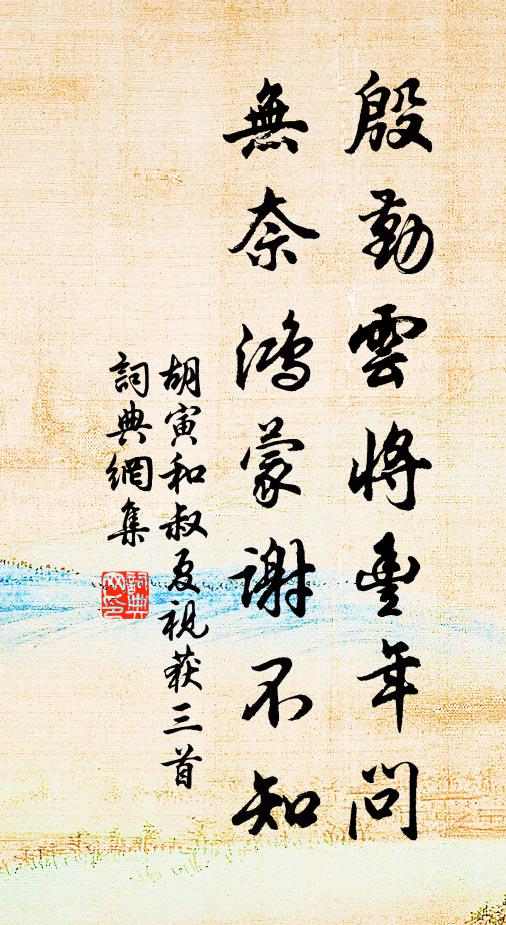 殷勤雲將豐年問
無奈鴻蒙謝不知
胡寅和叔夏視获三首
詞典網集